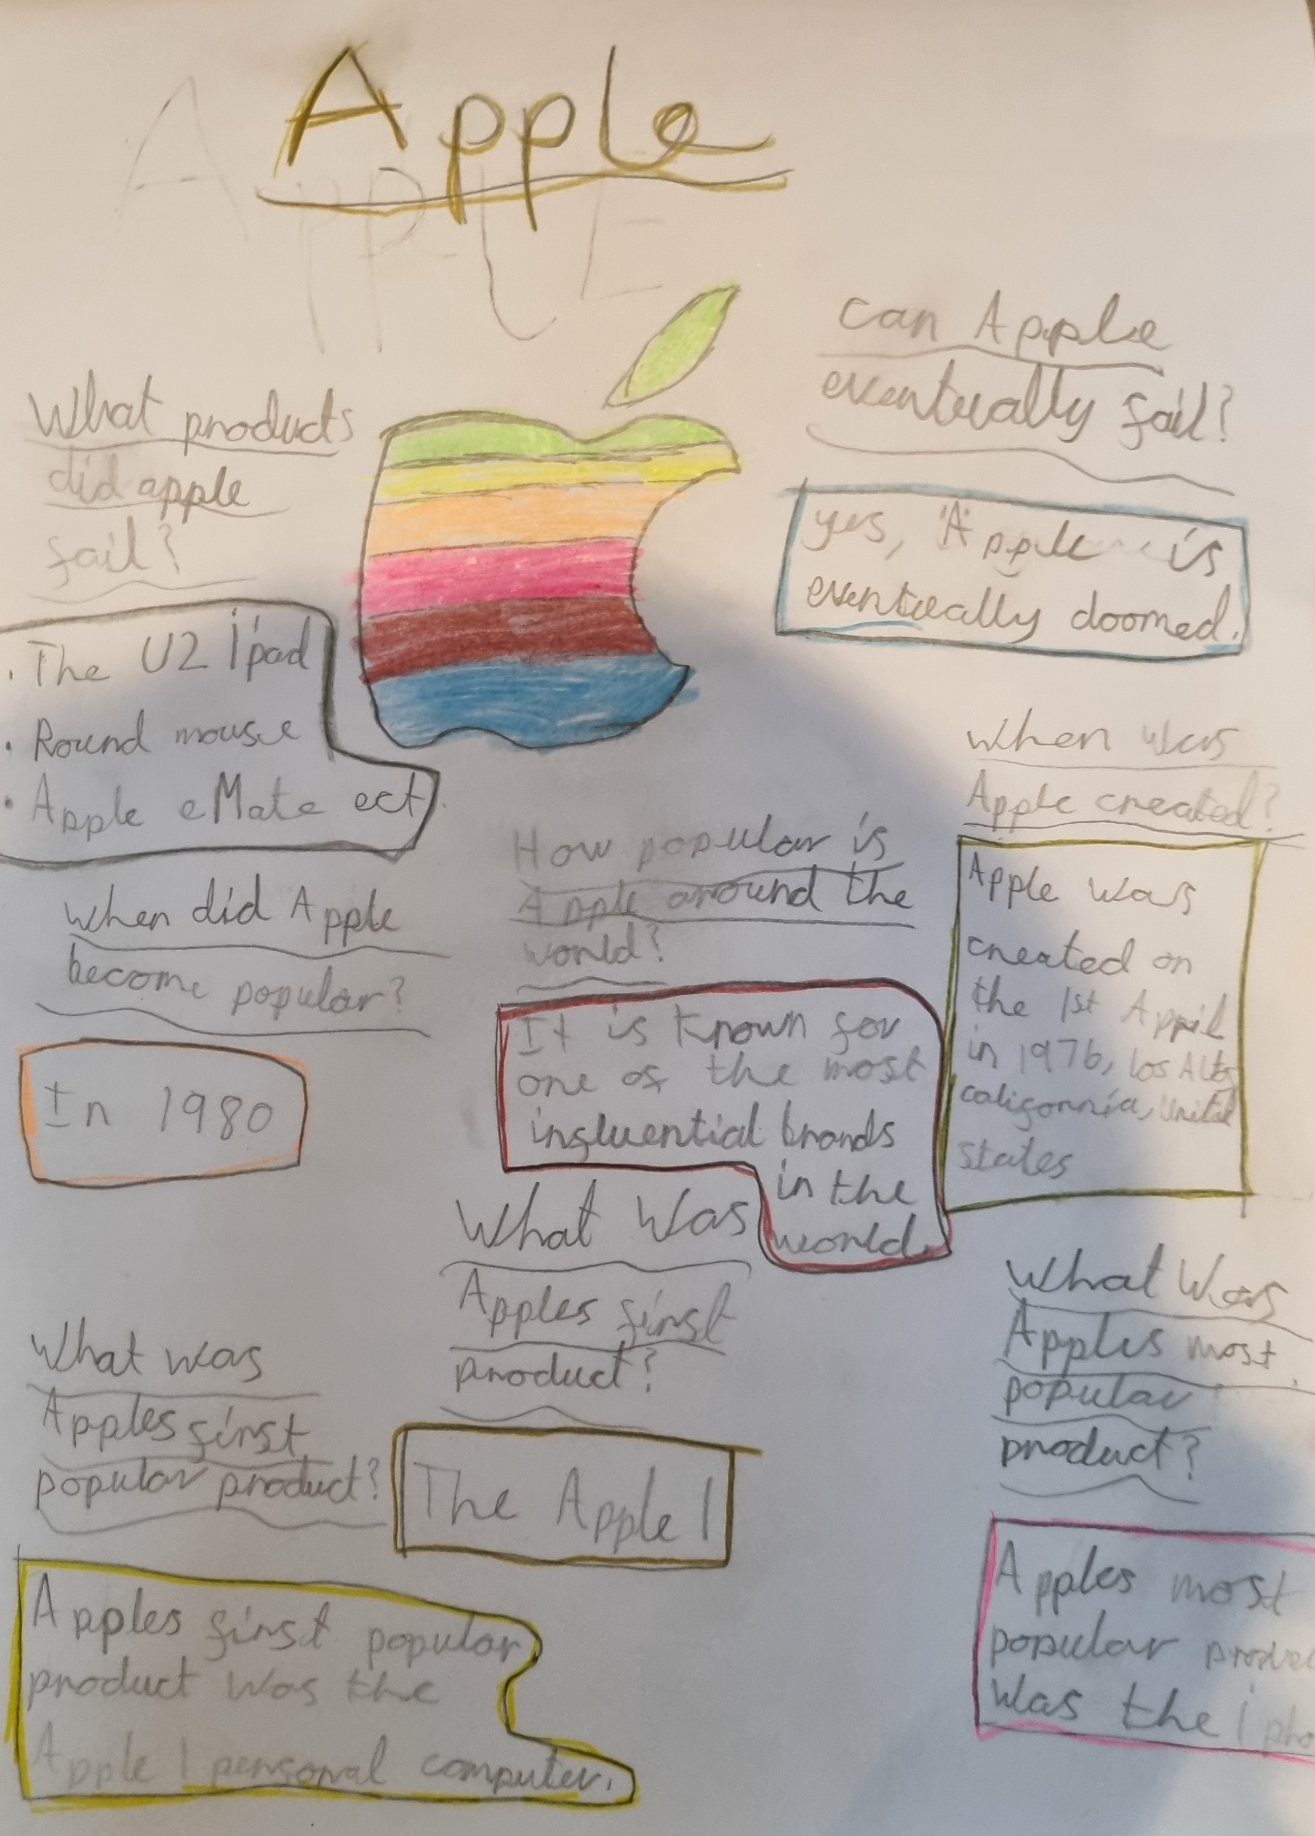 Apple
APPLE
What products
did apple
fail?
· The U2 ipad
· Round mouse
· Apple eMate ect.
can Apple
eventually fail?
yes, Apple is
eventually doomed.
when was
Apple created?
Apple was
created on
the 1st Appil
in 1976, Los Altos
califonnia, United
States
when did Apple
become popular?
In 1980
How popular is
Apple around the
world?
It is known for
one of the most
influential brands
in the
world.
What was
Apples first
product?
The Apple 1
What was
Apples first
popular product?
Apples first popular
product was the
Apple 1 personal computer.
What was
Apples most
popular
product?
Apples most
popular
was the i